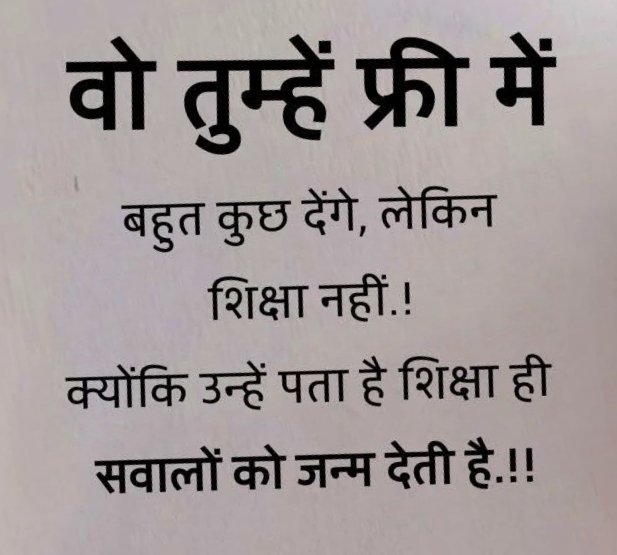 वो तुम्हें फ्री में
बहुत कुछ देंगे, लेकिन
शिक्षा नहीं.!
क्योंकि उन्हें पता है शिक्षा ही
सवालों को जन्म देती है.!!